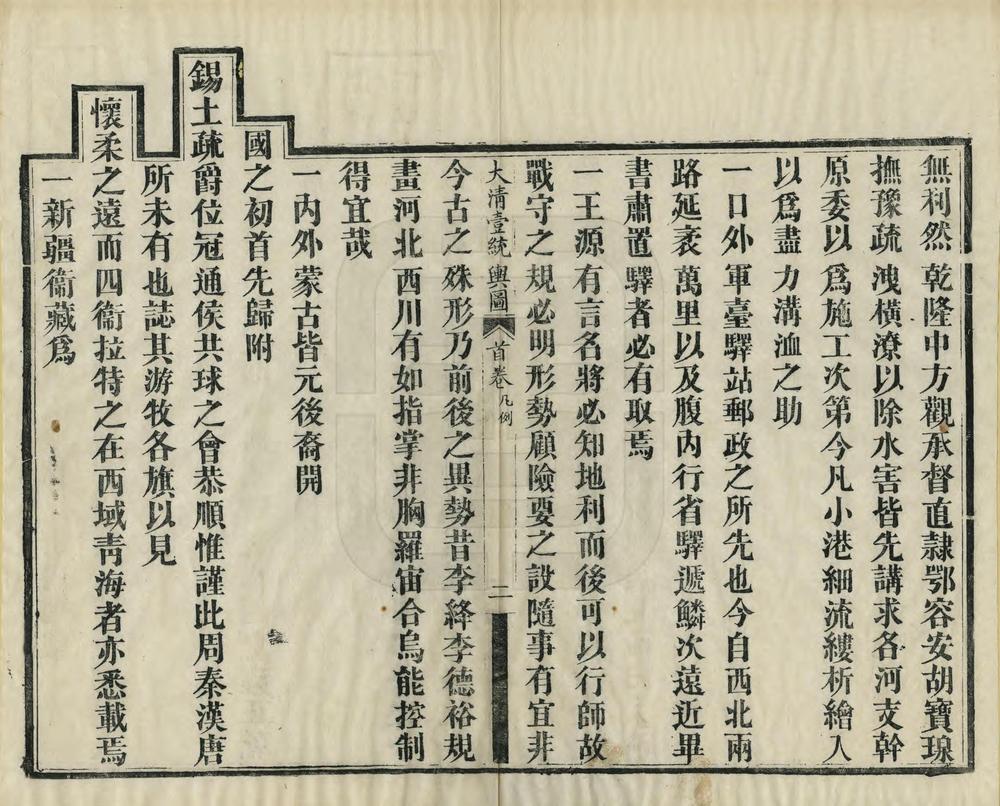 無利然乾隆中方觀承督直隷鄂容安胡寶瑔
撫豫疏洩橫潦以除水害皆先講求各河支幹
原委以爲施工次第今凡小港細流縷析繪入
以爲盡力溝洫之助
一口外軍臺驛站郵政之所先也今自西北兩
路延袤萬里以及腹内行省驛遞鱗次遠近畢
書肅置驛者必有取焉
一王源有言名將必知地利而後可以行師故
戰守之規必明形勢顧險要之設隨事有宜非
大清壹統輿圖 首卷 凡例 二
今古之殊形乃前後之異勢昔李絳李德裕規
畫河北西川有如指掌非胸羅宙合烏能控制
得宜哉
一内外蒙古皆元後裔開
國之初首先歸附
錫土疏爵位冠通侯共球之會恭順惟謹此周秦漢唐
所未有也誌其游牧各旗以見
懷柔之遠而四衞拉特之在西域靑海者亦悉載焉
一新疆衞藏爲